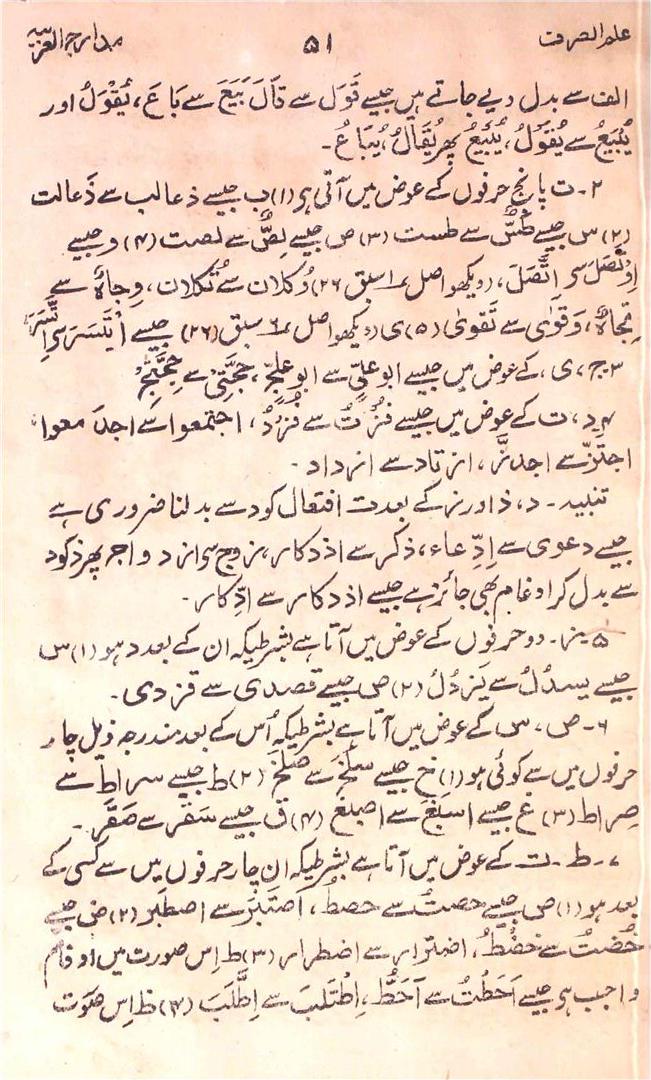 علم الصرف ۵۱ مدارج العزیہ
الف سے بدل دیے جاتے ہیں جیسے قَوَلَ سے قَالَ بَیَعَ سے بَاعَ، یُقْوَلُ اور
یُبْیَعُ سے یُقَوْلُ، یُبَیْعُ پھر یُقَالُ، یُبَاعُ۔
۲۔ ت پانچ حرفوں کے عوض میں آتی ہر (۱) ب جیسے ذعالب سے ذَعالت
(۲) س جیسے طَسٌّ سے طست (۳) ص جیسے لِصٌّ سے لصت (۴) و جیسے
اِوْتَصَلَ سر اتَّصَلَ، (دیکھو اصل ۱ سبق ۲۶) وُکلان سے تُکلان، وِجاہٌ سے
تُجاہٌ، وَقوٰی سے تَقویٰ (۵) ی (دیکھو اصل ۶ سبق (۲۶) جیسے اِیْتَسَرَ سر اِتَّسَرَ
۳۔ ج، ی، کے عوض میں جیسے ابو علیٍّ سے ابو علجٍّ، حجَّتِیْ سے حِجَّتِجْ
۴۔ د، ت کے عوض میں جیسے فُزْتُ سے فُزْدُ، اجتمعوا سے اجدَ معوا،
اجتزّ سے اجدزَّ، ازتاد سے ازداد۔
تنبیہ۔ د، ذ اور ز کے بعد ت افتعال کو د سے بدلنا ضروری ہے
جیسے دعوی سے اِدِّعاء، ذکر سے اذدکار، زوج سر ازدواج پھر ذ کو د
سے بدل کر ادغام بھی جائز ہے جیسے اذدکار سے ادِّکار۔
۵۔ ز۔ دو حرفوں کے عوض میں آتا ہے بشرطیکہ ان کے بعد د ہو (۱) س
جیسے یسدُلُ سے یَزدُلُ (۲) ص جیسے قصدی سے قزدی۔
۶۔ ص، س کے عوض میں آتا ہے بشرطیکہ اُس کے بعد مندرجہ ذیل چار
حرفوں میں سے کوئی ہو (۱) خ جیسے سلَخَ سے صَلَخَ (۲) ط جیسے سراط سے
صِراط (۳) غ جیسے اسبَغَ سے اصبَغَ (۴) ق جیسے سَقَر سے صَقَر۔
۷۔ ط۔ ت کے عوض میں آتا ہے بشرطیکہ ان چار حرفوں میں سے کسی کے
بعد ہو (۱) ص جیسے حصتُ سے حصطُ، اصتَبَرَ سے اصطَبر (۲) ض جیسے
خُضتُ سے خُضْطُ، اضترار سے اضطرار (۳) ط اِس صورت میں ادغام
واجب ہر جیسے اَحَطْتُ سے اَحَطُّ، اِطْتَلَبَ سے اِطَّلَبَ (۴) ظ اِس صورت